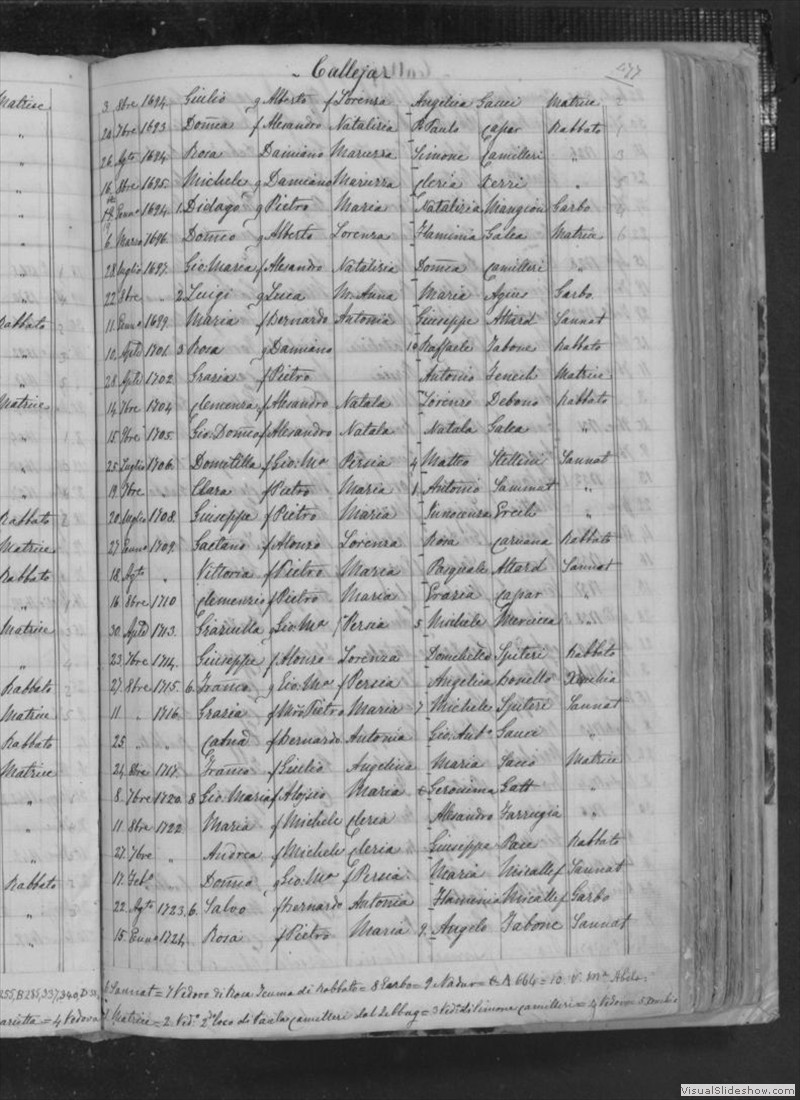 Calleja
477
3 8bre 1694 Giulio g Alberto f Lorenza Angelica Gauci Matrice
20 7bre 1693 Domca f Alesandro Natalizia Paulo Capar Rabbato
26 Agto 1694 Rosa Damiano Mariuzza Simone Camilleri "
16 8bre 1695 Michele g Damiano Mariuzza Cleria Xerri "
Ennro 1694 1 Didago g Pietro Maria Natalizia Mangion Garbo
6 Marzo 1696 Domco g Alberto Lorenza Flaminia Galea Matrice
28 luglio 1697 Gio: Maria f Alesandro Natalizia Domca Camilleri "
22 8bre " 2 Luigi g Luca M: Anna Maria Agius Garbo
11 Ennro 1699 Maria f Bernardo Antonia Giuseppe Attard Sannat
10 Aple 1701 3 Rosa g Damiano 10 Raffaele Tabone Rabbato
28 Aple 1702 Grazia f Pietro Antonio Tenech Matrice
14 7bre 1704 Clemenza f Alesandro Natala Lorenzo Debono Rabbato
15 1705 Gio: Domco f Alesandro Natala Natala Galea "
25 Luglio 1706 Domitilla f Gio: Ma Persia 4 Matteo Stellini Sannat
19 7bre " Clara f Pietro Maria 1 Antonio Saminat "
20 luglio 1708 Giuseppe f Pietro Maria Innocenza Ercih "
27 Ennro 1709 Gaetano f Alonzo Lorenza Rosa Caruana Rabbato
18 Agto " Vittoria f Pietro Maria Pasquale Attard Sannat
16 8bre 1710 Clemenzio f Pietro Maria Grazia Capar
30 Aple 1713 Graziulla g Gio: Ma f Persia 5 Michele Mercieca
23 7bre 1714 Giuseppe f Alonso Lorenza Domchilla Spiteri Rabbato
27 8bre 1715 6 Franco g Gio: Ma f Persia Angelica Bonello Xeuchia
11 " 1716 Grazia f Mro Pietro Maria 7 Michele Spiteri Sannat
25 " " Catna f Bernardo Antonia Gio: Antо Gauci "
24 8bre 1717 Franco f Giulio Angelina Maria Matrice
8 7bre 1720 8 Gio Maria f Aloisio Maria Geronima Gatt "
11 8bre 1722 Maria f Michele Cleria Alesandro Farrugia "
27 7bre " Andrea f Michele Cleria Giuseppa Pace Rabbato
17 Febo Domco g Gio: Ma f Persia Maria Micallef Sannat
22 Agto 1723 6 Salvo f Bernardo Antonia Flaminia Micallef Garbo
15 Ennro 1724 Rosa f Pietro Maria 9 Angelo Tabone Sannat
Sannat = 7 Vedovo di Rosa di Rabbato = 8 Garbo = 9 Nadur = A 664 = 10 V. Ma Abela
Matrice = 2 Vedo 2do loco di Paola Camilleri dal Zebbug = 3 Vedo di Simona Camilleri = 4 Vedovo = 5
Matrice
"
"
"
"
"
"
Rabbato
"
"
Matrice
"
"
Rabbato
Matrice
Rabbato
"
Matrice
"
Rabbato
Matrice
Rabbato
Matrice
"
"
"
Rabbato
"
255, B 285, 337, 340
= 4 Vedova
VisualSlideshow.com